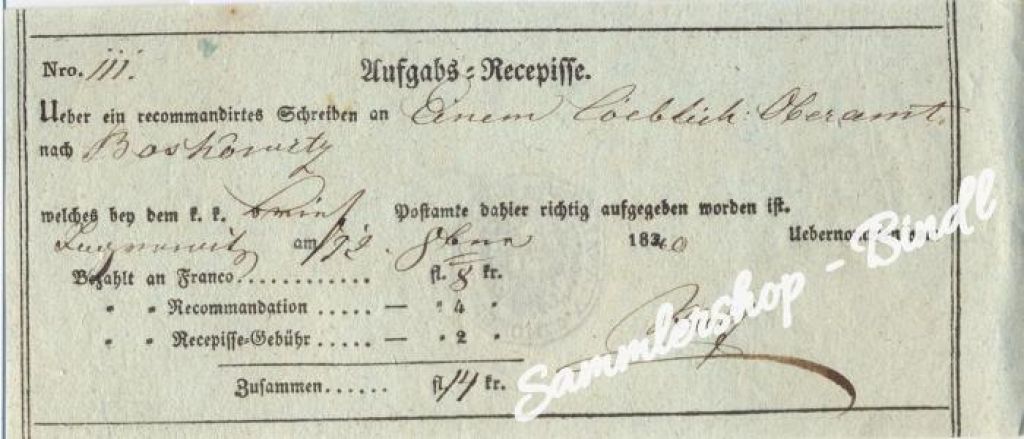 Nro. 111.
Aufgabs-Recepisse.
Ueber ein recommandirtes Schreiben an Einem Löeblich: Oberamt.
nach Boskowitz
welches bey dem k. k. Brief Postamte dahier richtig aufgegeben worden ist.
am 8bre 1840 Uebernommen
Bezahlt an Franco............ fl. 8 kr.
" " Recommandation ..... — " 4 "
" " Recepisse-Gebühr ..... — " 2 "
Zusammen...... fl. 14 kr.
Sammlershop - Bindl